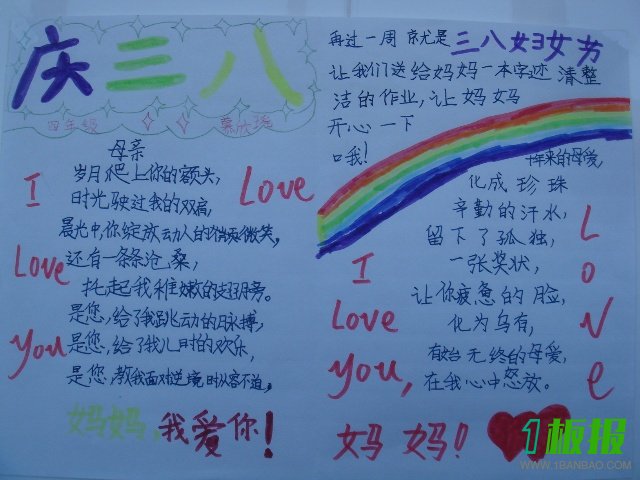 庆三八
四年级
母亲
岁月爬上你的额头,
时光驶过我的双肩,
晨光中,你绽放动人的微笑,
还有一条条沧桑,
托起我稚嫩的翅膀。
是您,给了我跳动的脉搏,
是您,给了我儿时的欢乐,
是您,教我面对逆境时从容不迫,
I Love
Love
You
妈妈,我爱你!
再过一周就是三八妇女节
让我们送给妈妈一本字迹清整
洁的作业,让妈妈
开心一下
口我!
年来的母爱,
化成珍珠
辛勤的汗水,
留下了孤独,
一张奖状,
让你疲惫的脸,
化为乌有,
有始无终的母爱,
在我心中怒放。
I
Love
you,
LOVe
妈妈!
1板报
WWW.1BANBAO.COM